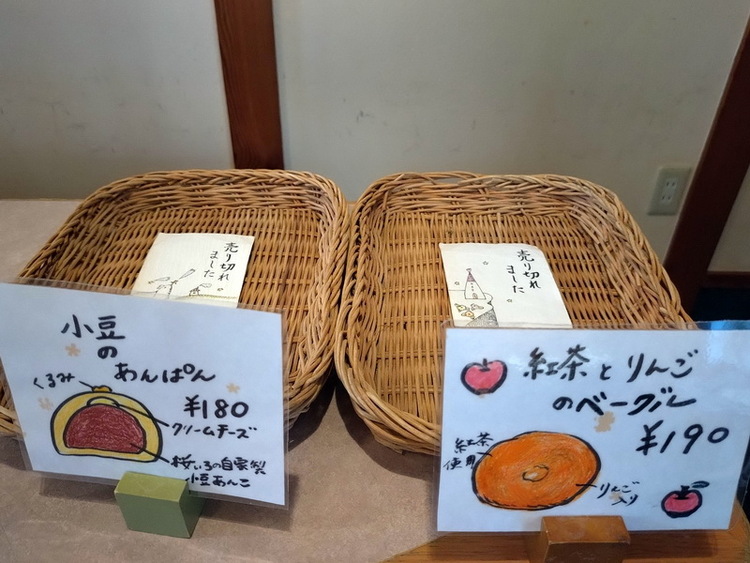 売り切れ
ました
売り切れ
ました
小豆
の
あんぱん
くるみ
¥180
クリームチーズ
桜いろの自家製
小豆あんこ
紅茶とりんご
のベーグル
¥190
紅茶
使用
りんご
入り